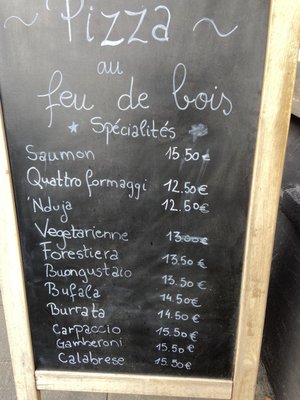 ~ Pizza ~
au
feu de bois
* Spécialités *
Saumon 15.50€
Quattro formaggi 12.50€
'Nduja 12.50€
Vegetarienne 13.00€
Forestiera 13.50€
Buongustaio 13.50€
Bufala 14.50€
Burrata 14.50€
Carpaccio 15.50€
Gamberoni 15.50€
Calabrese 15.50€